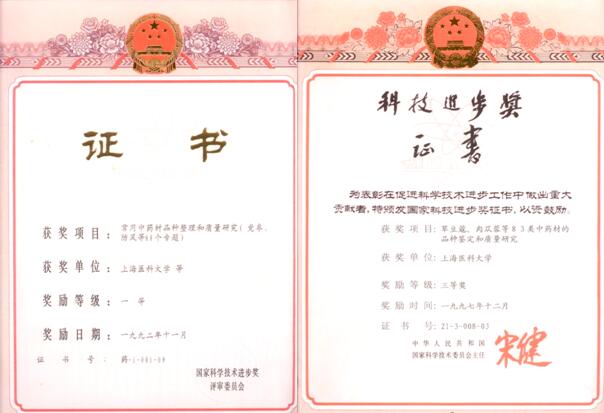 证书
获奖项目：常用中药材品种整理和质量研究(党参、
防风等41个专题)
获奖单位：上海医科大学 等
奖励等级：一 等
奖励日期：一九九二年十一月
证书号：药-1-001-09
国家科学技术进步奖
评审委员会
科技进步奖
证書
为表彰在促进科学技术进步工作中做出重大
贡献者，特颁发国家科技进步奖证书，以资鼓励。
获奖项目：草豆蔻、肉苁蓉等８３类中药材的
品种鉴定和质量研究
获奖单位：上海医科大学
奖励等级：三等奖
奖励时间：一九九七年十二月
证书号：21-3-008-03
中华人民共和国
国家科学技术委员会主任
宋健